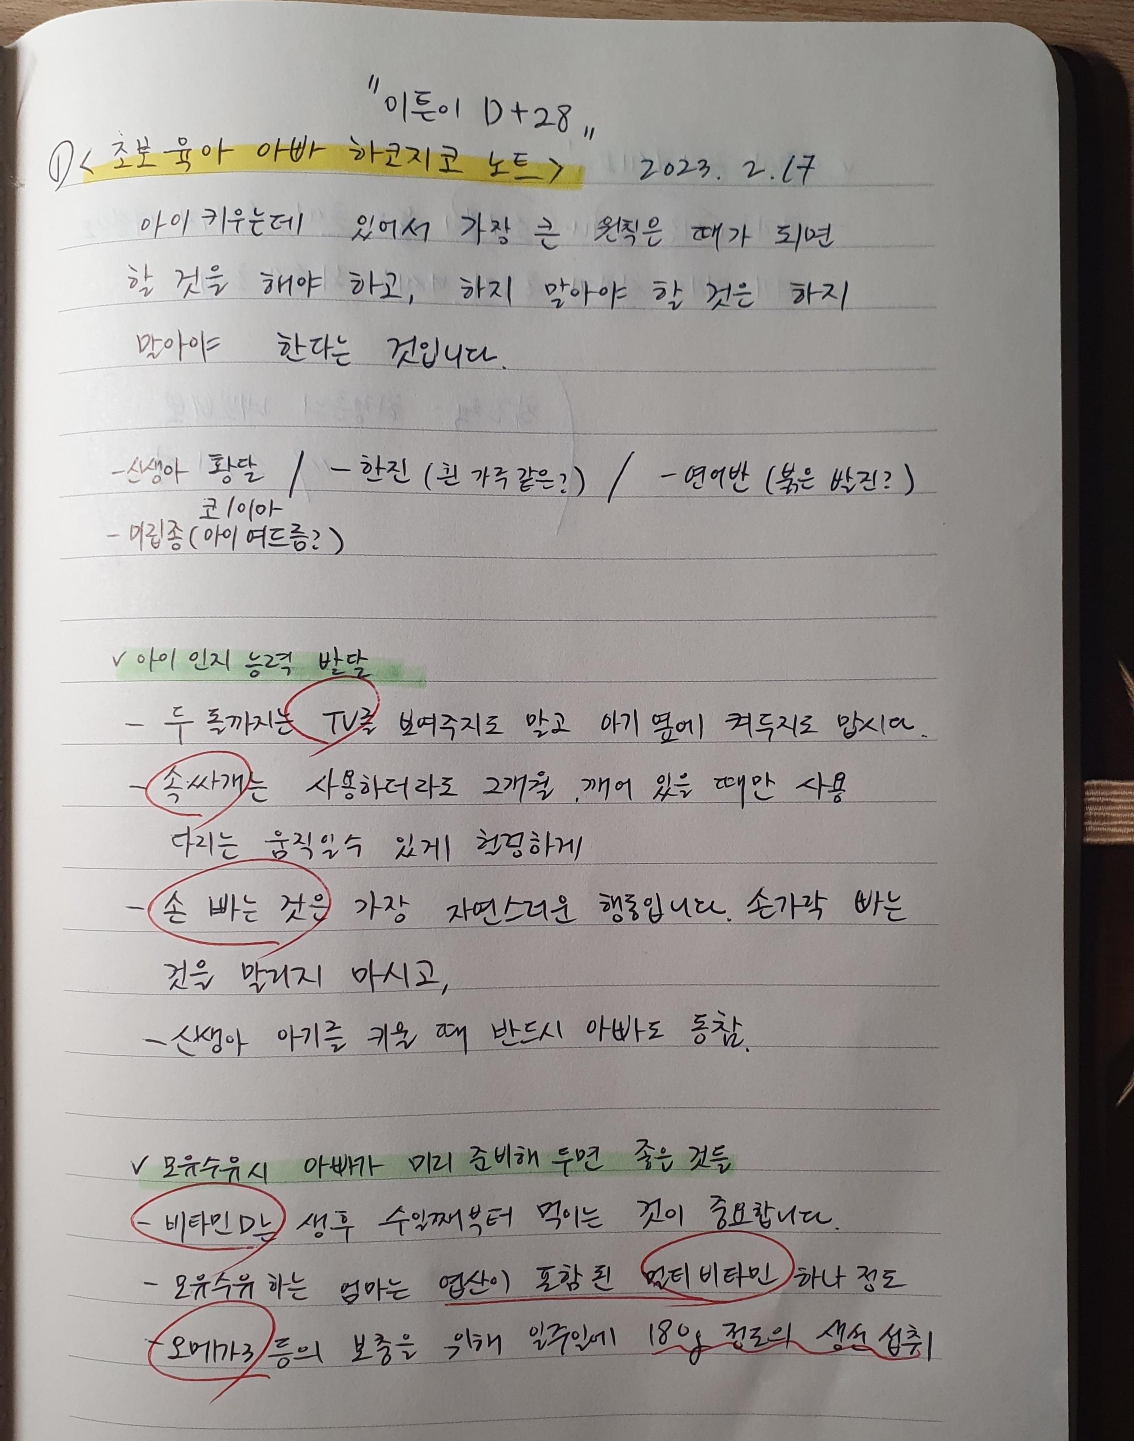 "이튼이 D+28"
① <초보 육아 아빠 하코지코 노트> 2023. 2. 17
아이 키우는데 있어서 가장 큰 원칙은 때가 되면
할 것을 해야 하고, 하지 말아야 할 것은 하지
말아야 한다는 것입니다.
- 신생아 황달 / - 한진 (흰 가죽 같은?) / - 연어반 (붉은 발진?)
코/이마
- 미립종 (아이 여드름?)
✓ 아이 인지 능력 발달
- 두 돌까지는 TV를 보여주지도 말고 아기 옆에 켜두지도 맙시다.
- 속싸개는 사용하더라도 2개월, 깨어 있을 때만 사용
다리는 움직일수 있게 헐렁하게
- 손 빠는 것은 가장 자연스러운 행동입니다. 손가락 빠는
것을 말리지 마시고,
- 신생아 아기를 키울 때 반드시 아빠도 동참.
✓ 모유수유시 아빠가 미리 준비해 두면 좋은 것들
- 비타민D는 생후 수일째부터 먹이는 것이 중요합니다.
- 모유수유 하는 엄마는 엽산이 포함된 멀티비타민 하나 정도
- 오메가3 등의 보충을 위해 일주일에 180g 정도의 생선 섭취